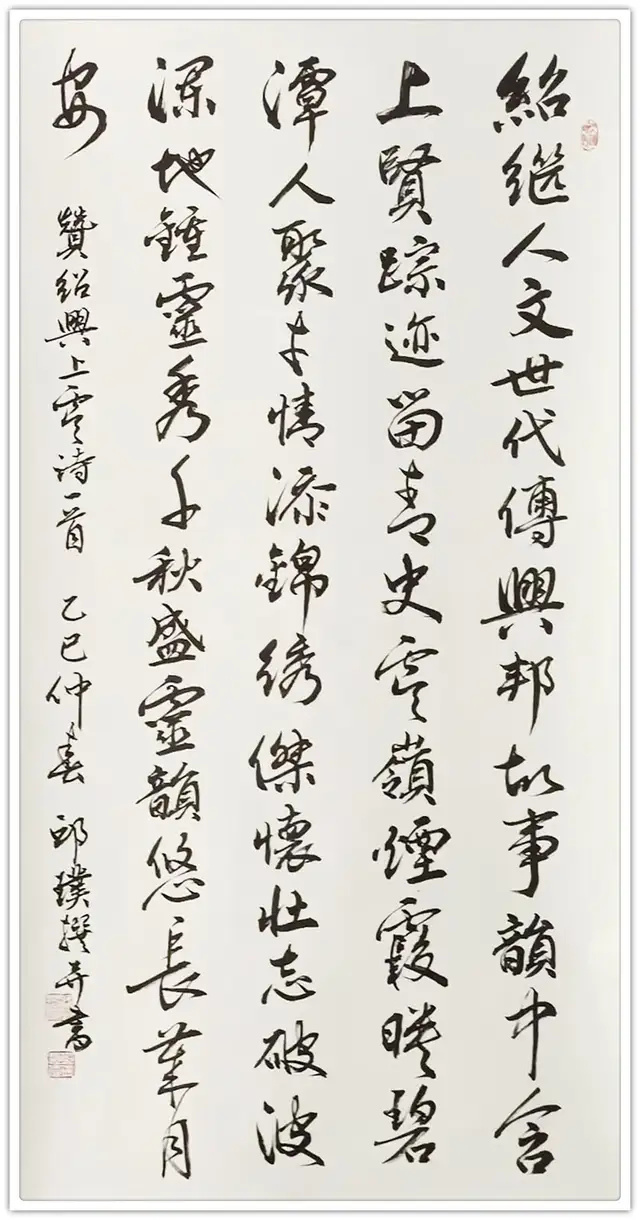 紹继人文世代傳興邦故事韻中含
上賢踪迹留青史虞嶺煙霞映碧
潭人聚才情添錦绣傑懷壯志破波
瀾地鍾靈秀千秋盛靈韻悠長歲月
安
贊紹興上虞诗一首 乙巳仲春 邱璞撰并書